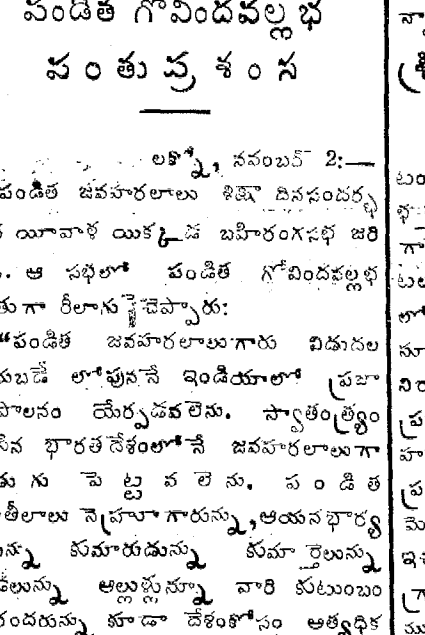 పండిత గోవిందవల్లభ
పంతు ప్రశంస
లక్నో, నవంబర్ 2:—
పండిత జవహరలాలు శిక్షా దినసందర్భ
యీవాళ యిక్కడ బహిరంగసభ జరి
. ఆ సభలో పండిత గోవిందవల్లభ
తుగా రీలాగు చెప్పారు:
“పండిత జవహరలాలుగారు విడుదల
యిబడే లోపుననే ఇండియాలో ప్రజా
పాలనం యేర్పడవలెను. స్వాతంత్ర్యం
సిన భారతదేశంలోనే జవహరలాలుగా
డుగు పెట్టవలెను. పండిత
తీలాలు నెహ్రూగారున్ను, ఆయనభార్య
న్ను కుమారుడున్ను కుమార్తెలున్ను
డలున్ను అల్లుళ్లున్నూ వారి కుటుంబం
రందరున్ను కూడా దేశంకోసం అత్యధిక